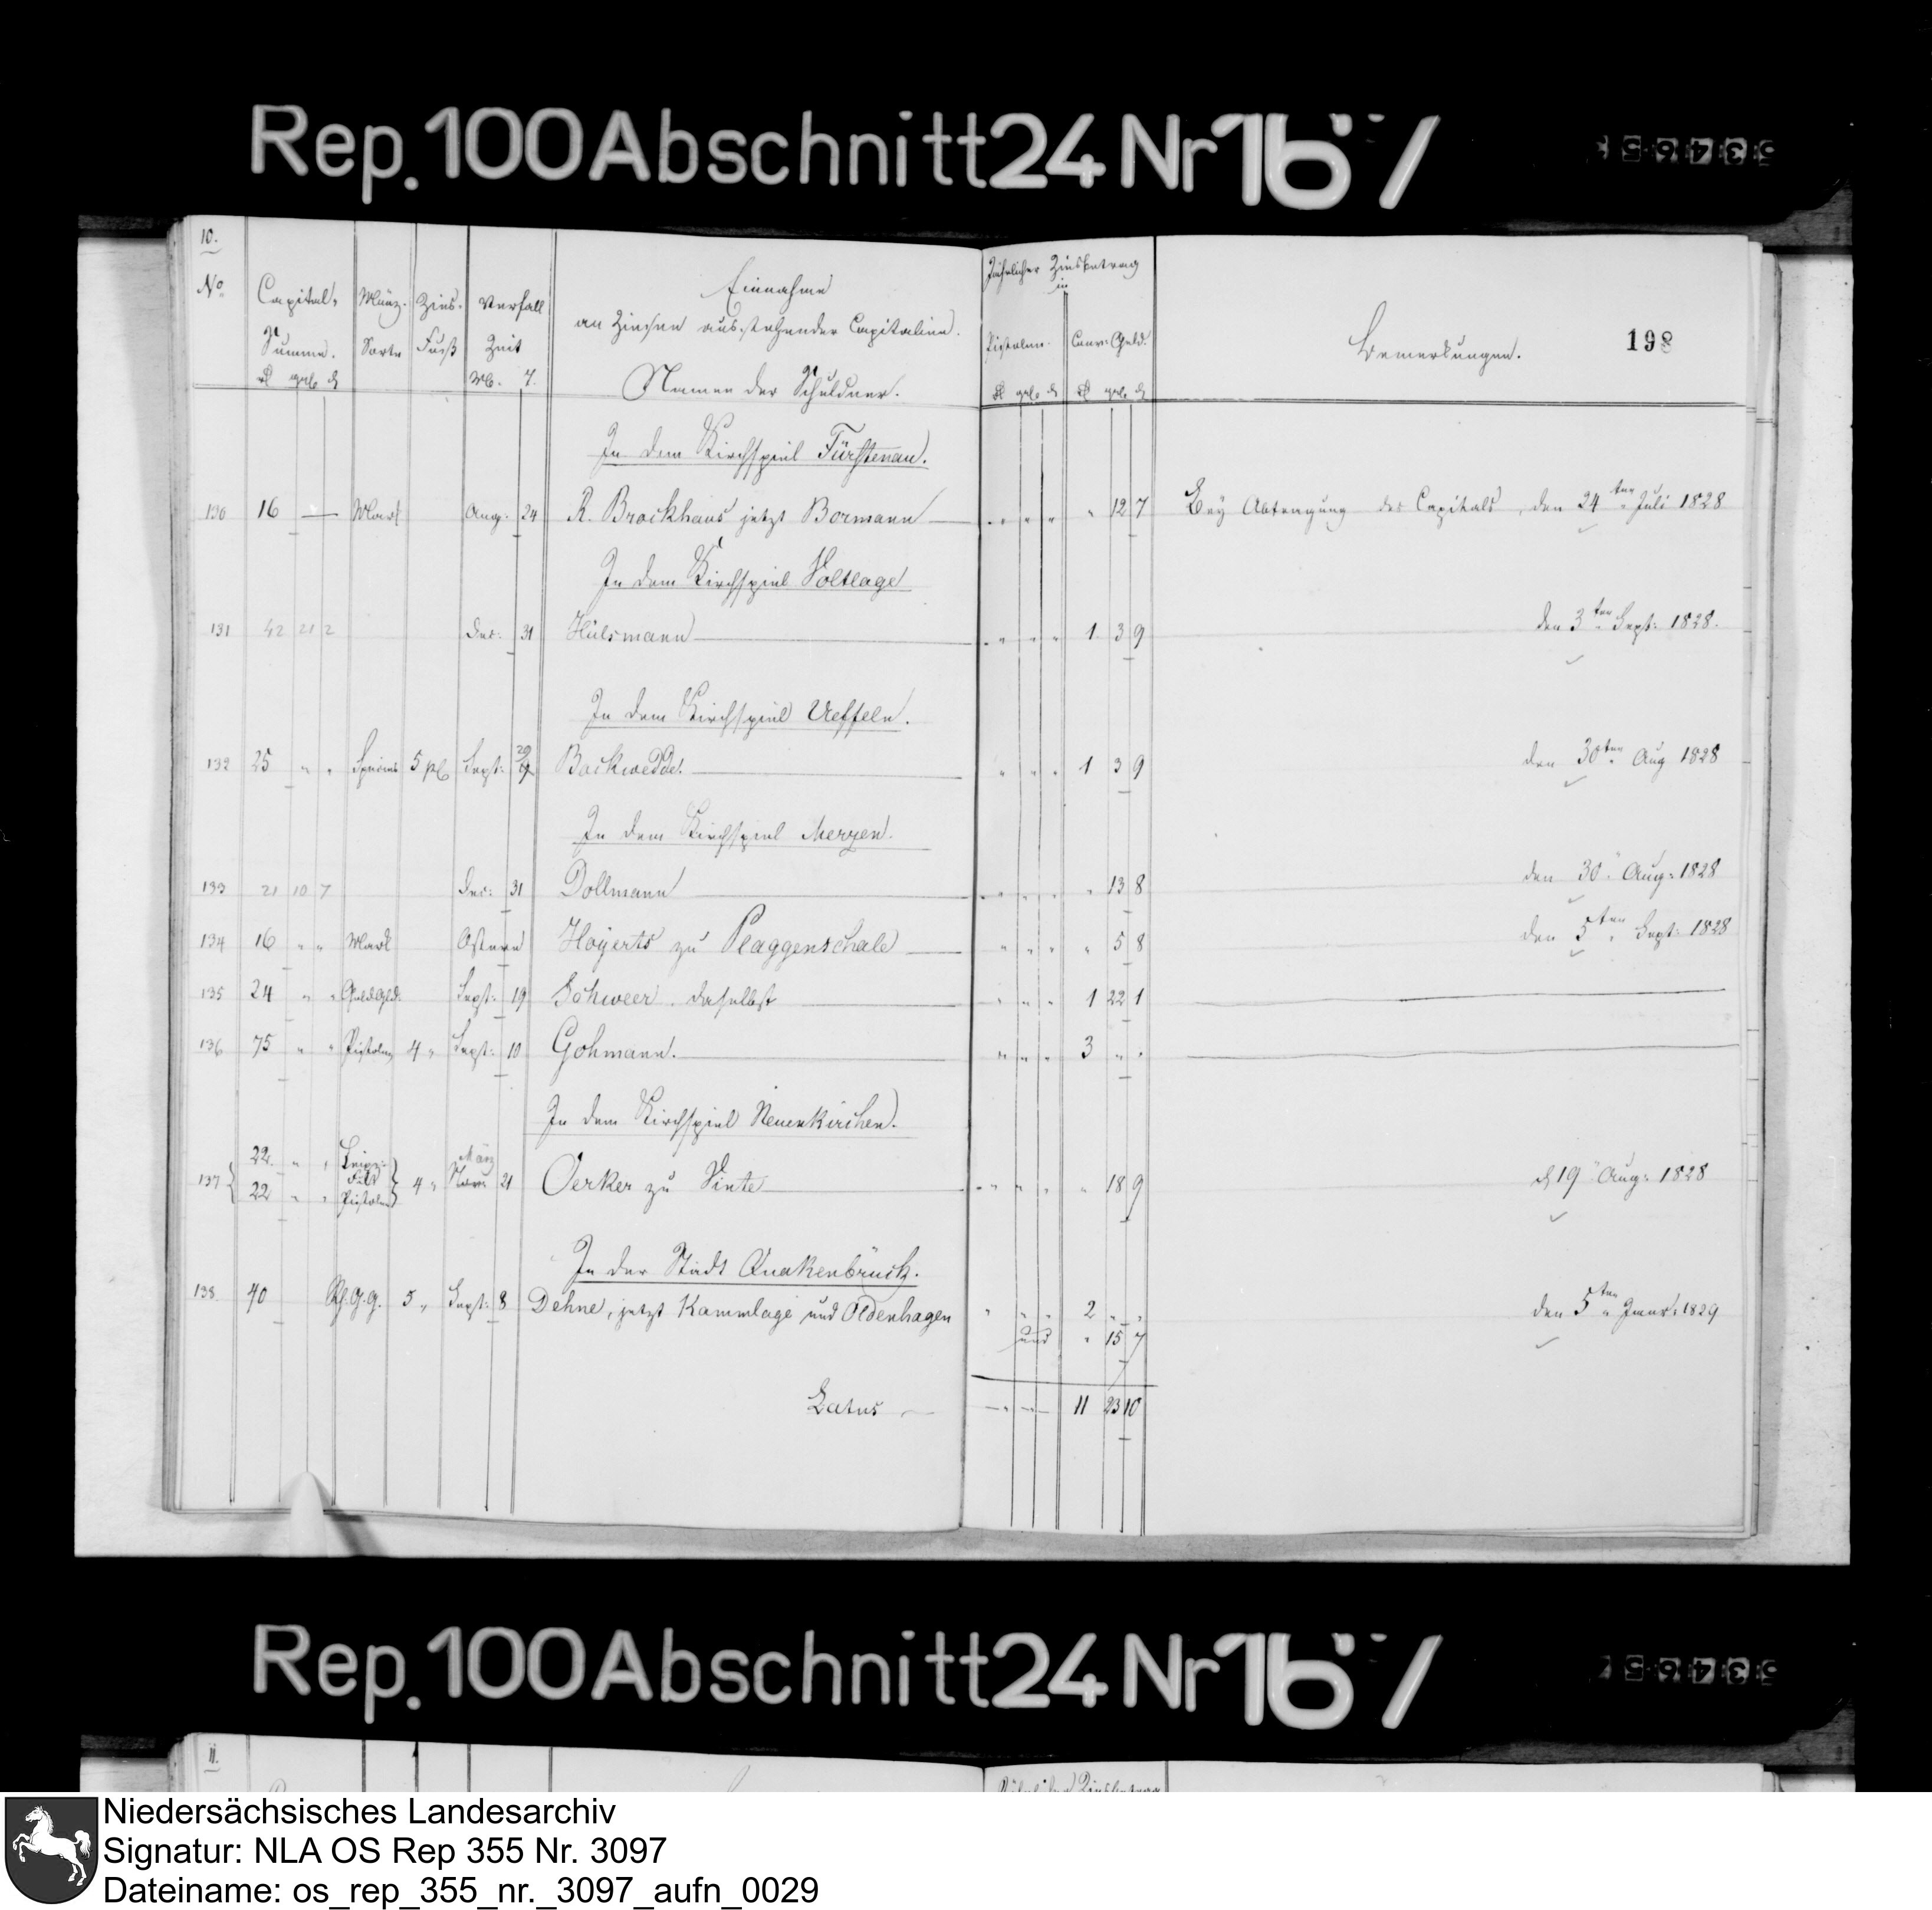 Rep. 100 Abschnitt 24 Nr 167
10.
No
Capital-
Summe.
Münz-
Sorte
Zins-
Fuß
Verfall
Zeit
M. T.
Einnahme
an Zinsen ausstehender Capitalien.
Namen der Schuldner.
Jährlicher Zinsbetrag
in
Pistolen.
Conv: Geld.
Bemerkungen.
198
In dem Kirchspiel Fürstenau.
130 16 — Mark Aug. 24 R. Brockhaus jetzt Bormann — " 12 7 Bey Abtragung des Capitals, den 24ten Juli 1828
In dem Kirchspiel Voltlage
131 42 21 2 Dec: 31 Hülsmann — 1 3 9 den 3ten Sept: 1828.
In dem Kirchspiel Ueffeln.
132 25 " " Species 5 pC Sept: 29 Backwedde. — 1 3 9 den 30ten Aug 1828
In dem Kirchspiel Merzen.
133 21 10 7 Dec: 31 Dollmann — " 13 8 den 30" Aug: 1828
134 16 " " Mark Ostern Hoyerts zu Plaggenschale — " 5 8 den 5ten Sept: 1828
135 24 " " Goldgld. Sept: 19 Schweer. daselbst — 1 22 1
136 75 " " Pistolen 4 " Sept: 10 Gohmann. — 3 " "
In dem Kirchspiel Neuenkirchen.
22. " "
137 22 " " Pistolen 4 " März Nov: 21 Oerker zu Vinte — " 18 9 d 19" Aug: 1828
In der Stadt Quakenbrück.
138 40 5 " Sept: 8 Dehne, jetzt Kammlage und Oldenhagen 2 " " den 5ten Januar 1829
und " 15 7
Latus — 11 23 10
Rep. 100 Abschnitt 24 Nr 167
11.
Niedersächsisches Landesarchiv
Signatur: NLA OS Rep 355 Nr. 3097
Dateiname: os_rep_355_nr._3097_aufn_0029